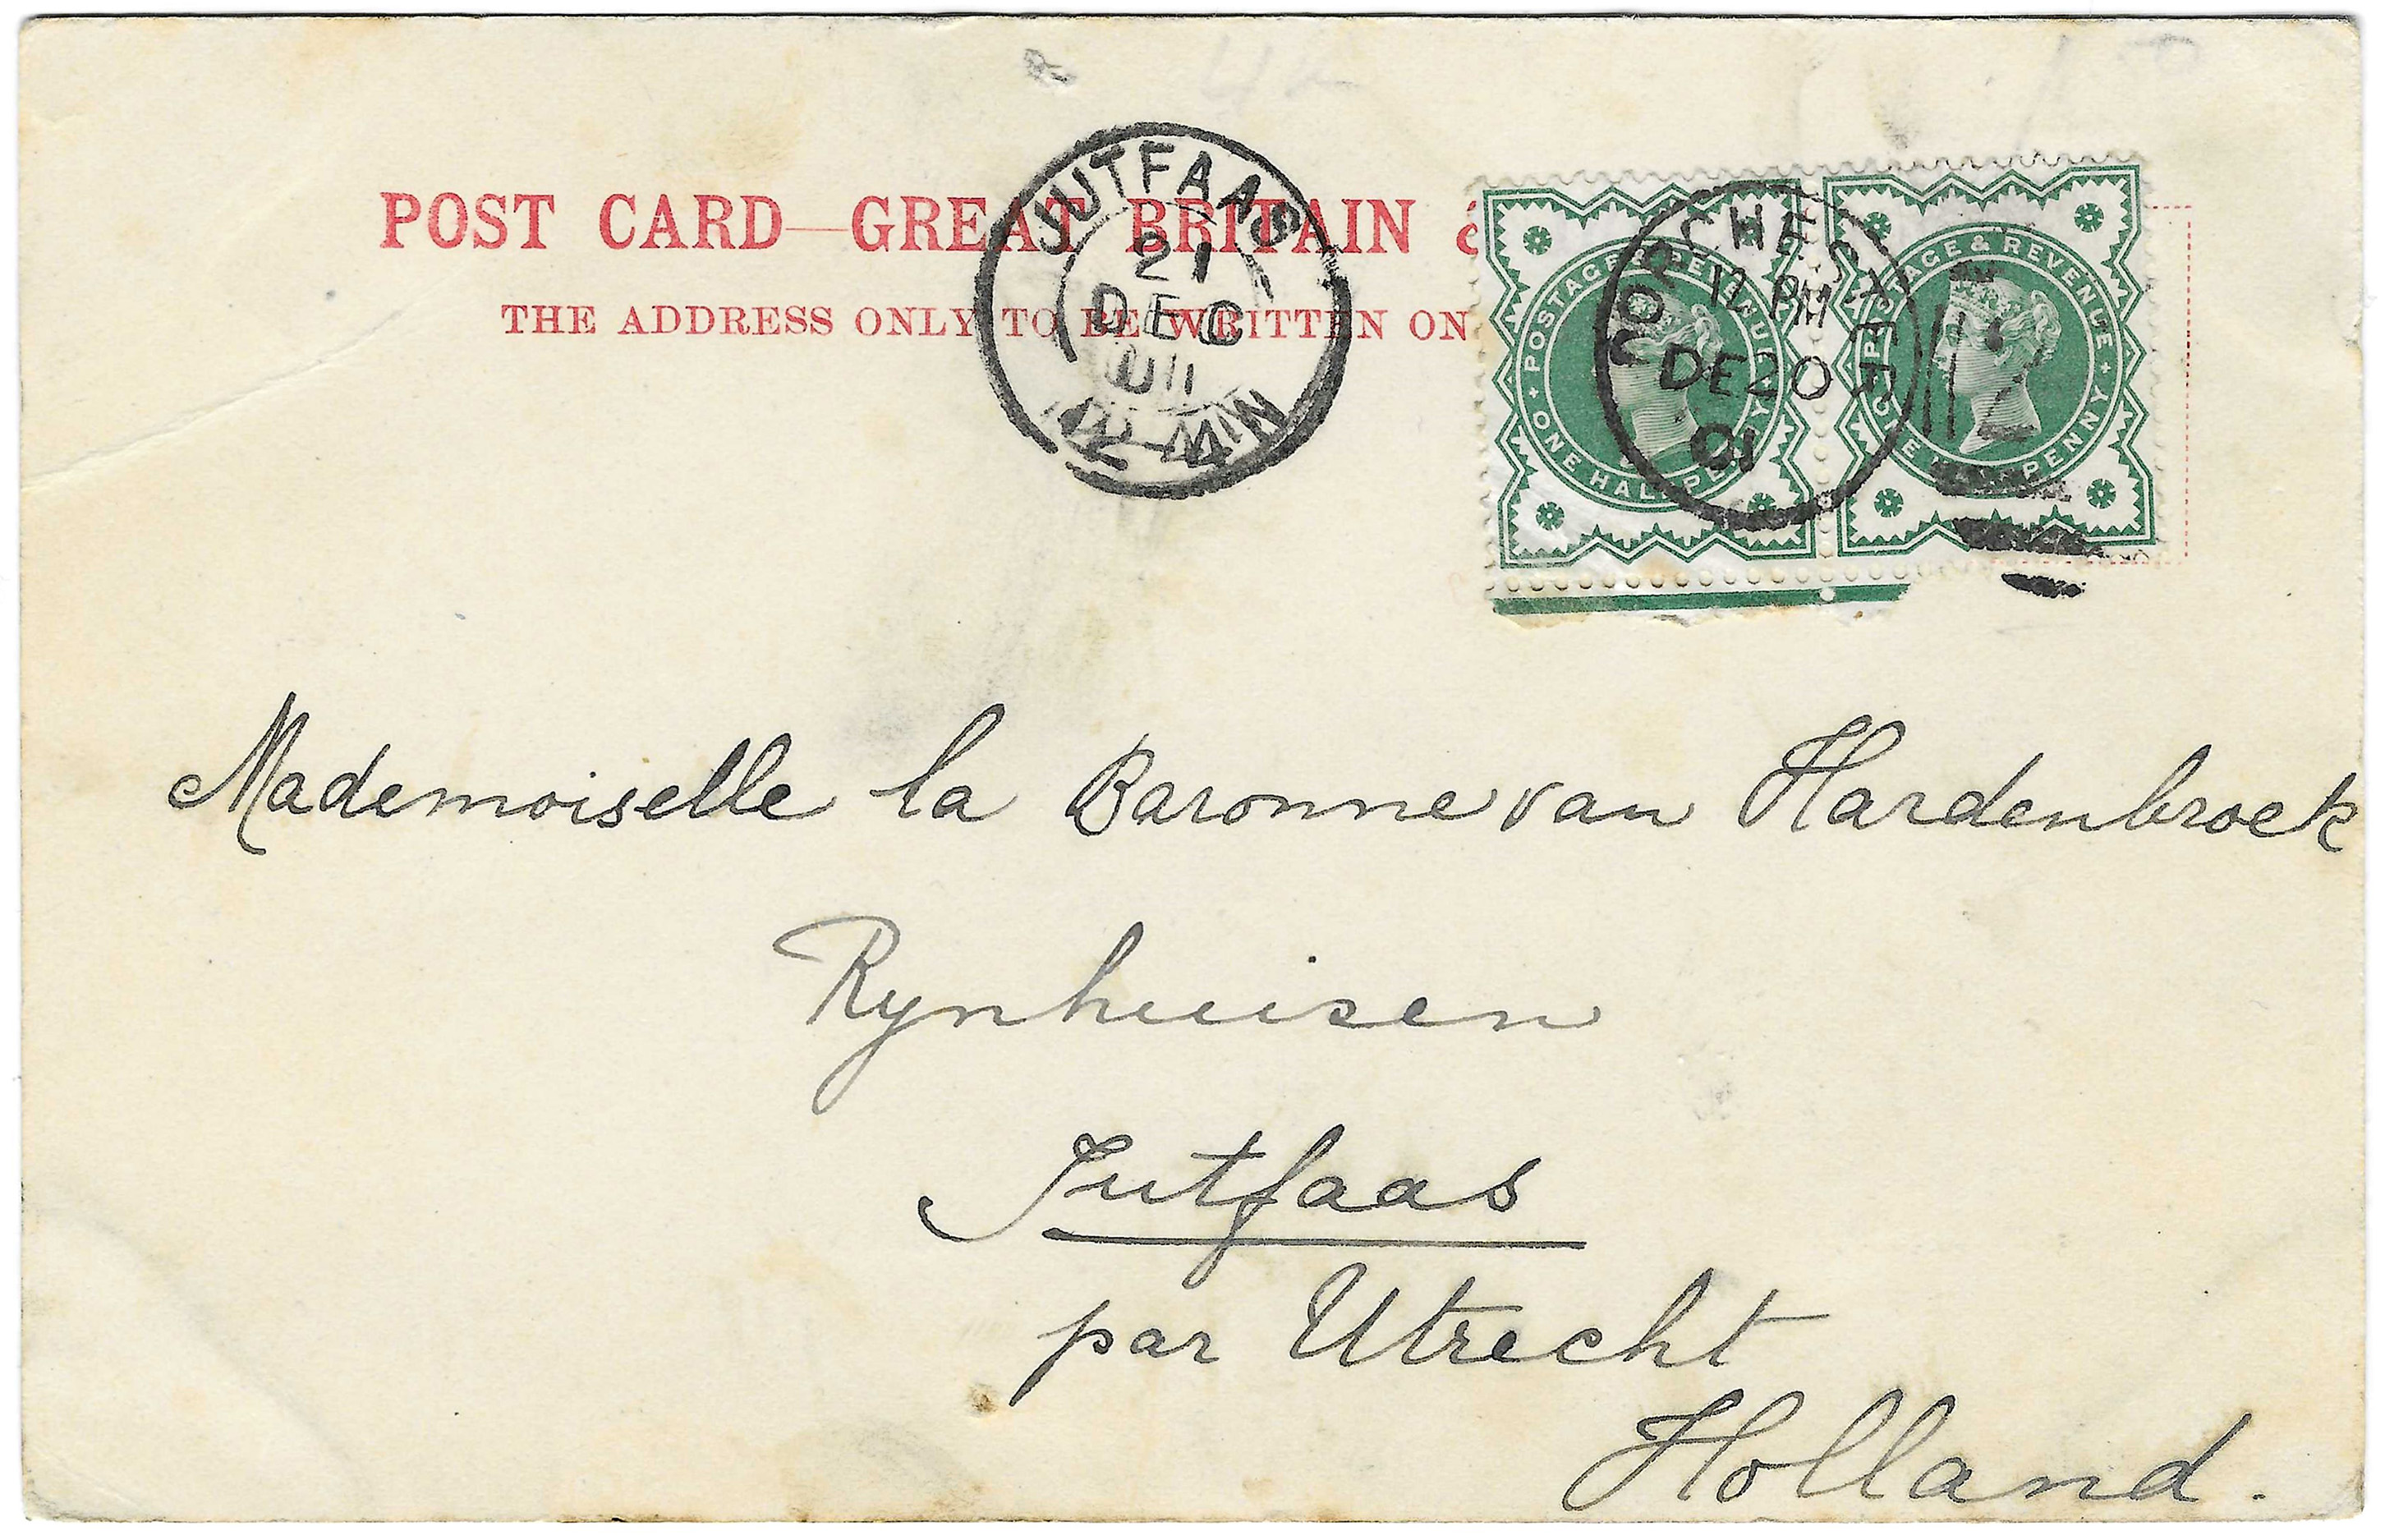 POST CARD—GREAT BRITAIN
THE ADDRESS ONLY TO BE WRITTEN ON
JUTFAAS
21
DEC
01
12-
DORCHESTER
PM
DE 20
01
POSTAGE & REVENUE
ONE HALFPENNY
POSTAGE & REVENUE
ONE HALFPENNY
Mademoiselle la Baronne van Hardenbroek
Rynhuisen
Jutfaas
par Utrecht
Holland.